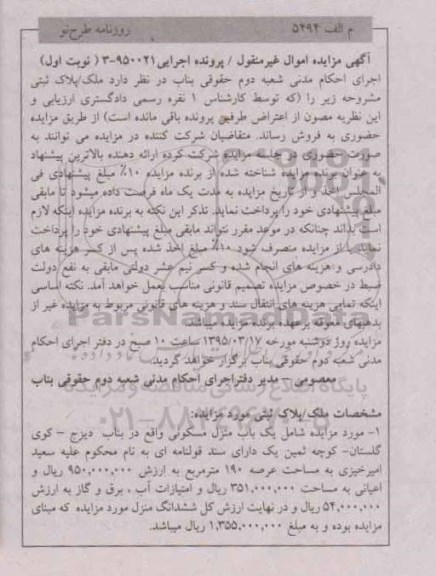 م الف ۵۴۹۴
روزنامه طرح‌نو
آگهی مزایده اموال غیرمنقول / پرونده اجرایی۹۵۰۰۲۱-۳ ( نوبت اول)
اجرای احکام مدنی شعبه دوم حقوقی بناب در نظر دارد ملک/پلاک ثبتی
مشروحه زیر را (که توسط کارشناس ۱ نفره رسمی دادگستری ارزیابی و
این نظریه مصون از اعتراض طرفین پرونده باقی مانده است) از طریق مزایده
حضوری به فروش رساند. متقاضیان شرکت کننده در مزایده می توانند به
صورت حضوری در جلسه مزایده شرکت کرده ارائه دهنده بالاترین پیشنهاد
به عنوان برنده مزایده شناخته شده از برنده مزایده ۱۰٪ مبلغ پیشنهادی فی
المجلس اخذ و از تاریخ مزایده به مدت یک ماه فرصت داده میشود تا مابقی
مبلغ پیشنهادی خود را پرداخت نماید. تذکر این نکته به برنده مزایده اینکه لازم
است بداند چنانکه در موعد مقرر نتواند مابقی مبلغ پیشنهادی خود را پرداخت
نماید یا از مزایده منصرف شود ۱۰٪ مبلغ اخذ شده پس از کسر هزینه های
دادرسی و هزینه های انجام شده و کسر نیم عشر دولتی مابقی به نفع دولت
ضبط در خصوص مزایده تصمیم قانونی مناسب بعمل خواهد آمد. نکته اساسی
اینکه تمامی هزینه های انتقال سند و هزینه های قانونی مربوط به مزایده غیر از
بدهیهای معوقه برعهده برنده مزایده میباشد.
ParsNamadData
مزایده روز دوشنبه مورخه ۱۳۹۵/۰۳/۱۷ ساعت ۱۰ صبح در دفتر اجرای احکام
مدنی شعبه دوم حقوقی بناب برگزار خواهد گردید.
معصومی – مدیر دفتراجرای احکام مدنی شعبه دوم حقوقی بناب
پایگاه اطلاع رسانی مناقصه و مزایده
مشخصات ملک/پلاک ثبتی مورد مزایده:
۱- مورد مزایده شامل یک باب منزل مسکونی واقع در بناب دیزج – کوی
گلستان- کوچه ثمین یک دارای سند قولنامه ای به نام محکوم علیه سعید
امیرخیزی به مساحت عرصه ۱۹۰ مترمربع به ارزش ۹۵۰,۰۰۰,۰۰۰ ریال و
اعیانی به مساحت ۳۵۱,۰۰۰,۰۰۰ ریال و امتیازات آب ، برق و گاز به ارزش
۵۴,۰۰۰,۰۰۰ ریال و در نهایت ارزش کل ششدانگ منزل مورد مزایده که مبنای
مزایده بوده و به مبلغ ۱,۳۵۵,۰۰۰,۰۰۰ ریال میباشد.